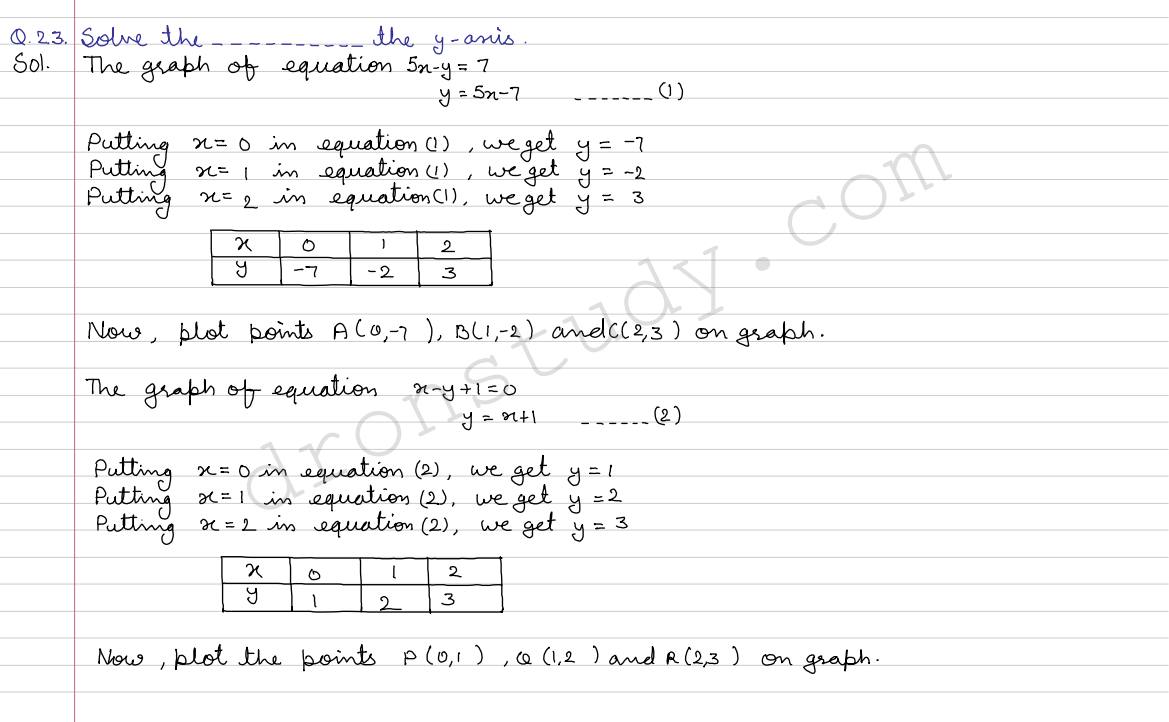 Q.23. Solve the ----------- the y-axis.
Sol. The graph of equation 5x-y = 7
y = 5x-7 ------- (1)
Putting x = 0 in equation (1), we get y = -7
Putting x = 1 in equation (1), we get y = -2
Putting x = 2 in equation (1), we get y = 3
x 0 1 2
y -7 -2 3
Now, plot points A(0,-7), B(1,-2) and C(2,3) on graph.
The graph of equation x-y+1=0
y = x+1 ------ (2)
Putting x = 0 in equation (2), we get y = 1
Putting x = 1 in equation (2), we get y = 2
Putting x = 2 in equation (2), we get y = 3
x 0 1 2
y 1 2 3
Now, plot the points P(0,1), Q(1,2) and R(2,3) on graph.
dronstudy.com